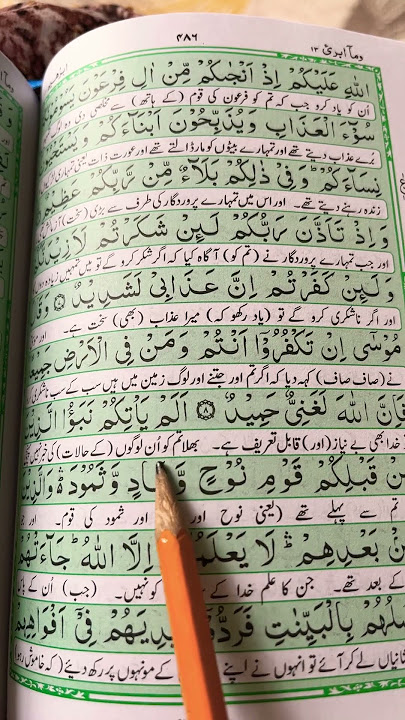 وماابرئ ١٣
٤٨٦
اللهِ عَلَيْكُمْ اِذْ اَنْجٰىكُمْ مِّنْ اٰلِ فِرْعَوْنَ
اُن کو یاد کرو جب کہ تم کو فرعون کی قوم (کے ہاتھ) سے مخلصی دی وہ
سُوْٓءَ الْعَذَابِ وَيُذَبِّحُوْنَ اَبْنَآءَكُمْ
بُرے عذاب دیتے تھے اور تمہارے بیٹوں کو مار ڈالتے تھے اور عورت ذات یعنی تمہاری
نِسَآءَكُمْ ؕ وَفِيْ ذٰلِكُمْ بَلَآءٌ مِّنْ رَّبِّكُمْ
زندہ رہنے دیتے تھے۔ اور اس میں تمہارے پروردگار کی طرف سے بڑی (سخت)
وَاِذْ تَاَذَّنَ رَبُّكُمْ لَئِنْ شَكَرْتُمْ
اور جب تمہارے پروردگار نے (تم کو) آگاہ کیا کہ اگر شکر کرو گے تو میں تمہیں زیادہ
وَلَئِنْ كَفَرْتُمْ اِنَّ عَذَابِيْ لَشَدِيْدٌ
اور اگر ناشکری کرو گے تو (یاد رکھو کہ) میرا عذاب (بھی) سخت ہے۔ اور
مُوْسٰٓى اِنْ تَكْفُرُوْٓا اَنْتُمْ وَمَنْ فِي الْاَرْضِ
نے (صاف صاف) کہہ دیا کہ اگر تم اور جتنے اور لوگ زمین میں ہیں سب کے سب ناشکری
فَاِنَّ اللهَ لَغَنِيٌّ حَمِيْدٌ ۝٨ اَلَمْ يَاْتِكُمْ نَبَؤُا
خدا بھی بے نیاز (اور) قابل تعریف ہے۔ بھلا تم کو اُن لوگوں (کے حالات) کی خبر نہیں
قَبْلِكُمْ قَوْمِ نُوْحٍ وَّعَادٍ وَّثَمُوْدَ
تم سے پہلے تھے (یعنی نوح اور اور ثمود کی قوم۔ اور
بَعْدِهِمْ ؕ لَا اِلَّا اللهُ ؕ
کے بعد تھے۔ جن کا علم خدا کے کو نہیں۔ (جب) اُن کے
بِالْبَيِّنٰتِ فِيْٓ اَفْوَاهِهِمْ
نشانیاں لے کر آئے تو انہوں نے اپنے کے مونہوں پر رکھ دیئے (کہ خاموش